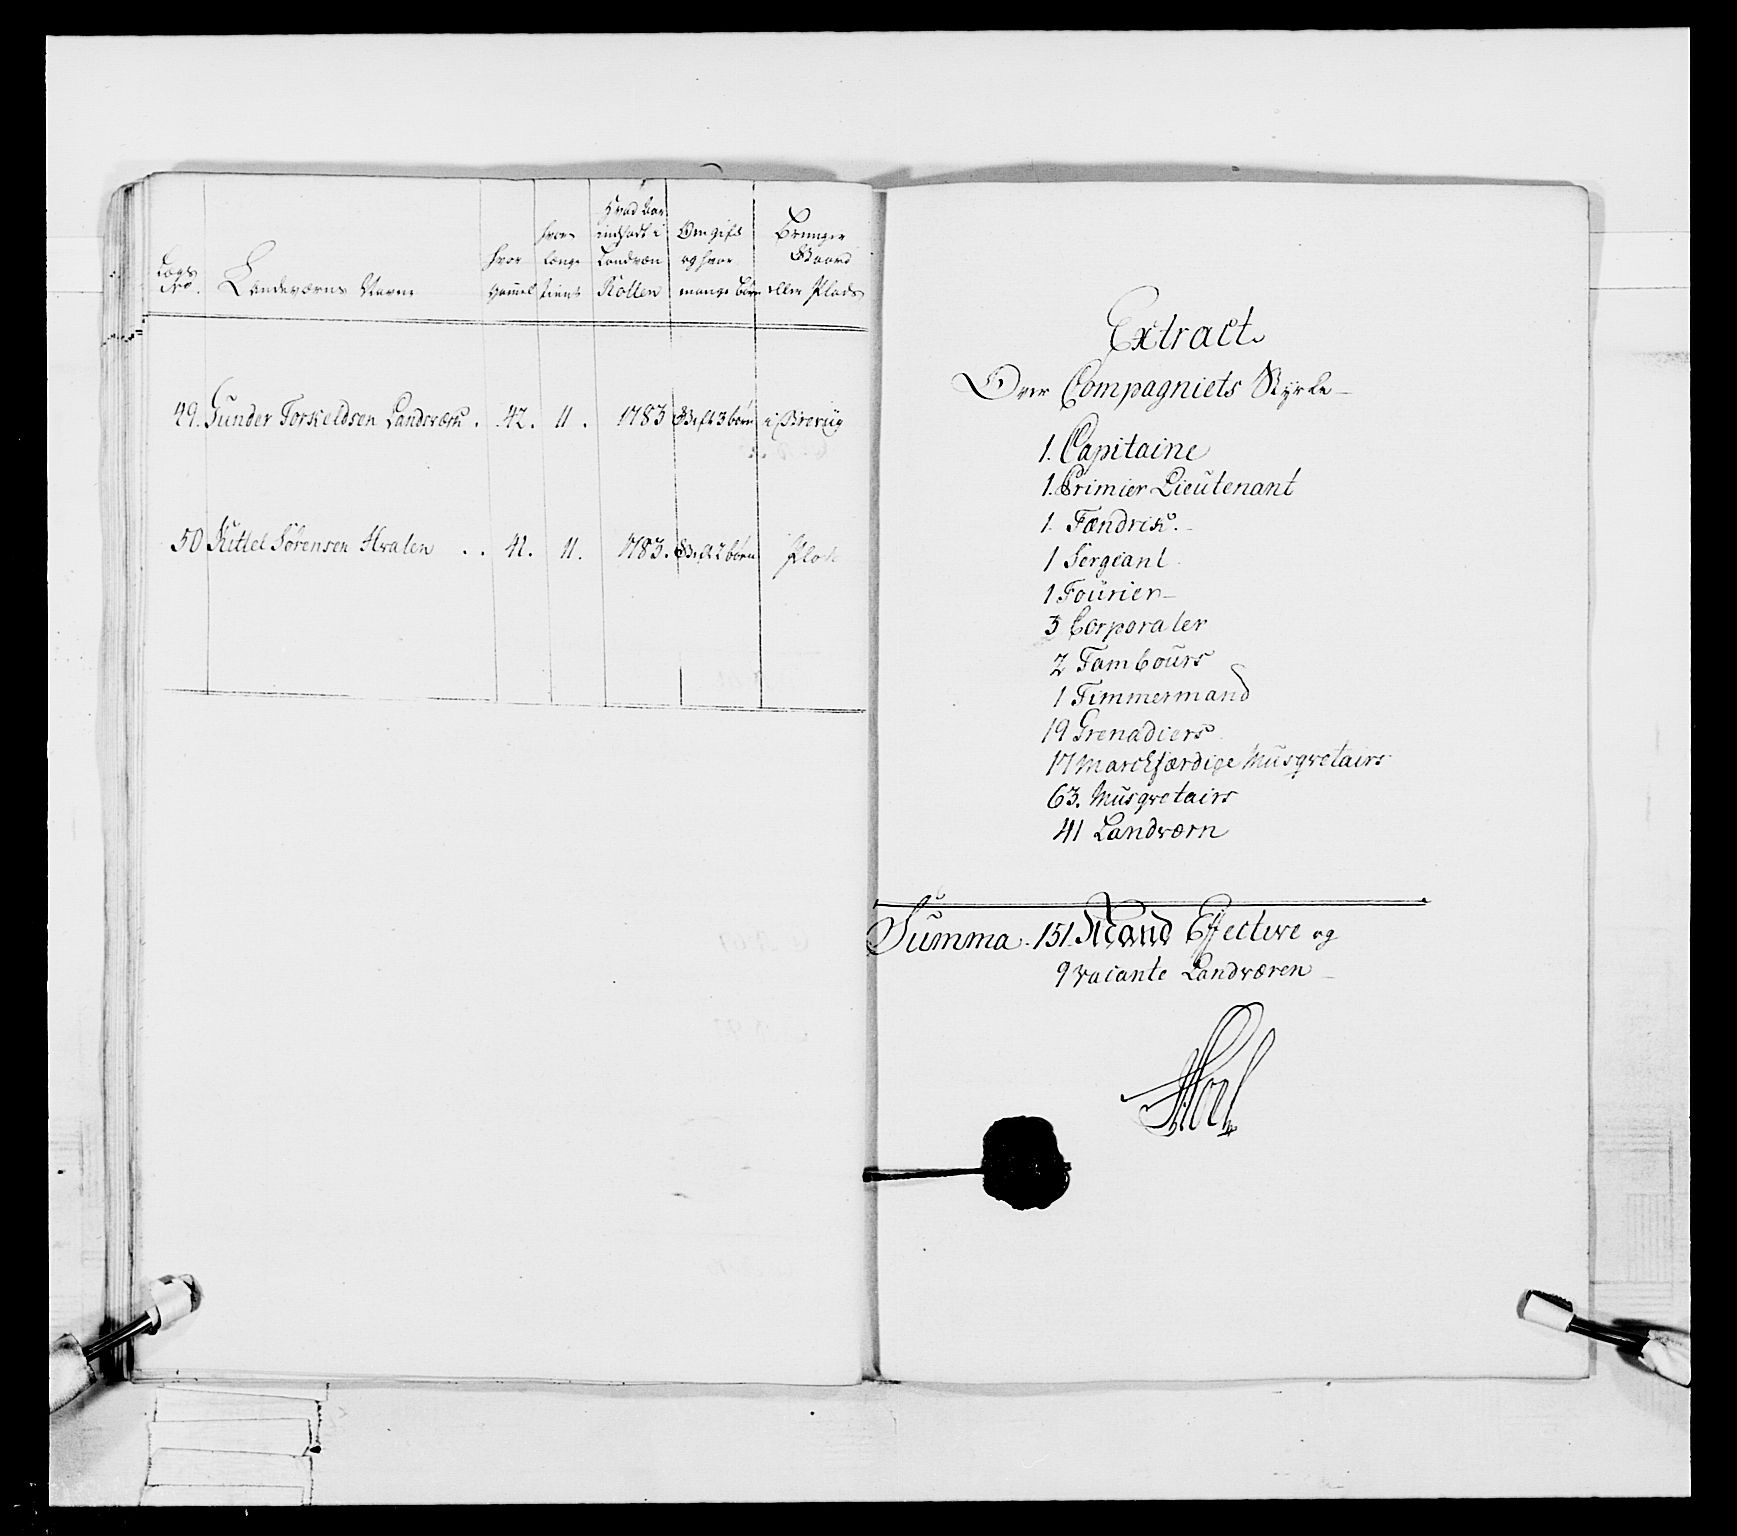 Lægs No.
Landeværns Navne
hvor gammel
hvor længe tient
Hvad Aar indsadt i Landværn Rollen
Om gift og hvor mange børn
Bruuger Gaard eller Plads
49. Gunder Torkeldsen Landværk. 42. 11. 1783 Gift 3 børn i
50 Kittel Sørensen Hvalen .. 41. 11. 1783. Gift 2 børn Plads
Extract
Over Compagniets Styrke
1. Capitaine
1. Primier Lieutenant
1. Fændrik.
1 Sergeant
1 Fourier
3 Corporaler
2 Tambours
1 Timmermand
19 Grenadiers
17 Marchfærdige Musqvetairs
63. Musqvetairs
41 Landværn
Summa. 151. Mand Effective og
9 vacante Landværen